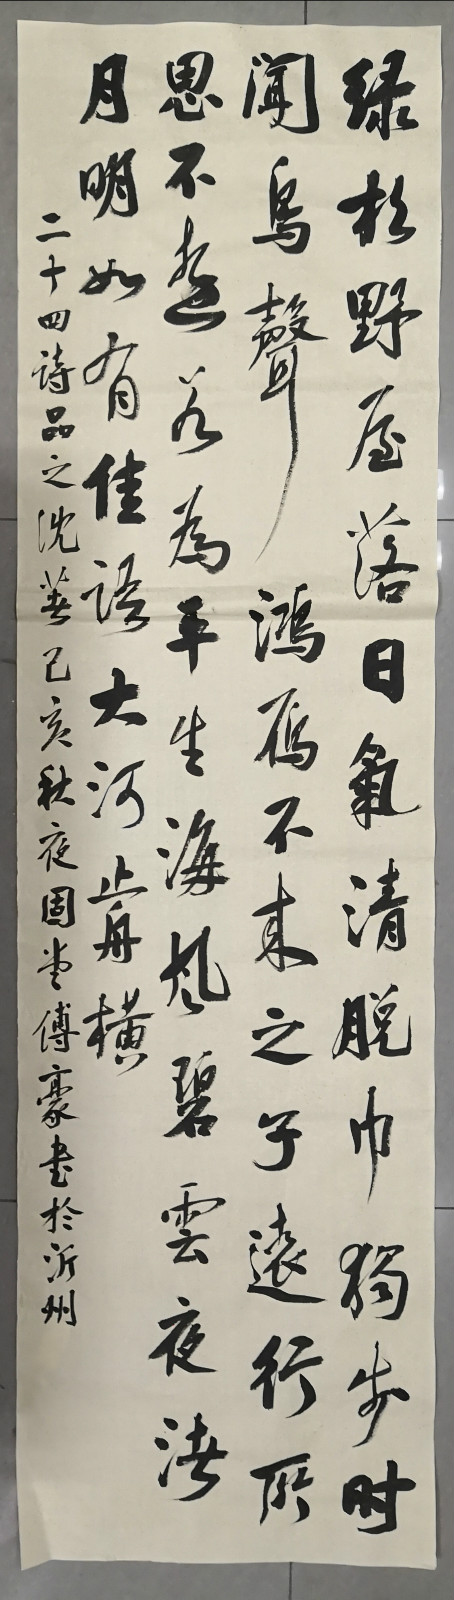 绿杉野屋落日氣清脱巾獨步时
闻鸟聲鸿鴈不来之子遠行所
思不遠若為平生海风碧雲夜渚
月明如有佳语大河歬横
二十四詩品之沈著己亥秋夜固堂傅豪书於沂州